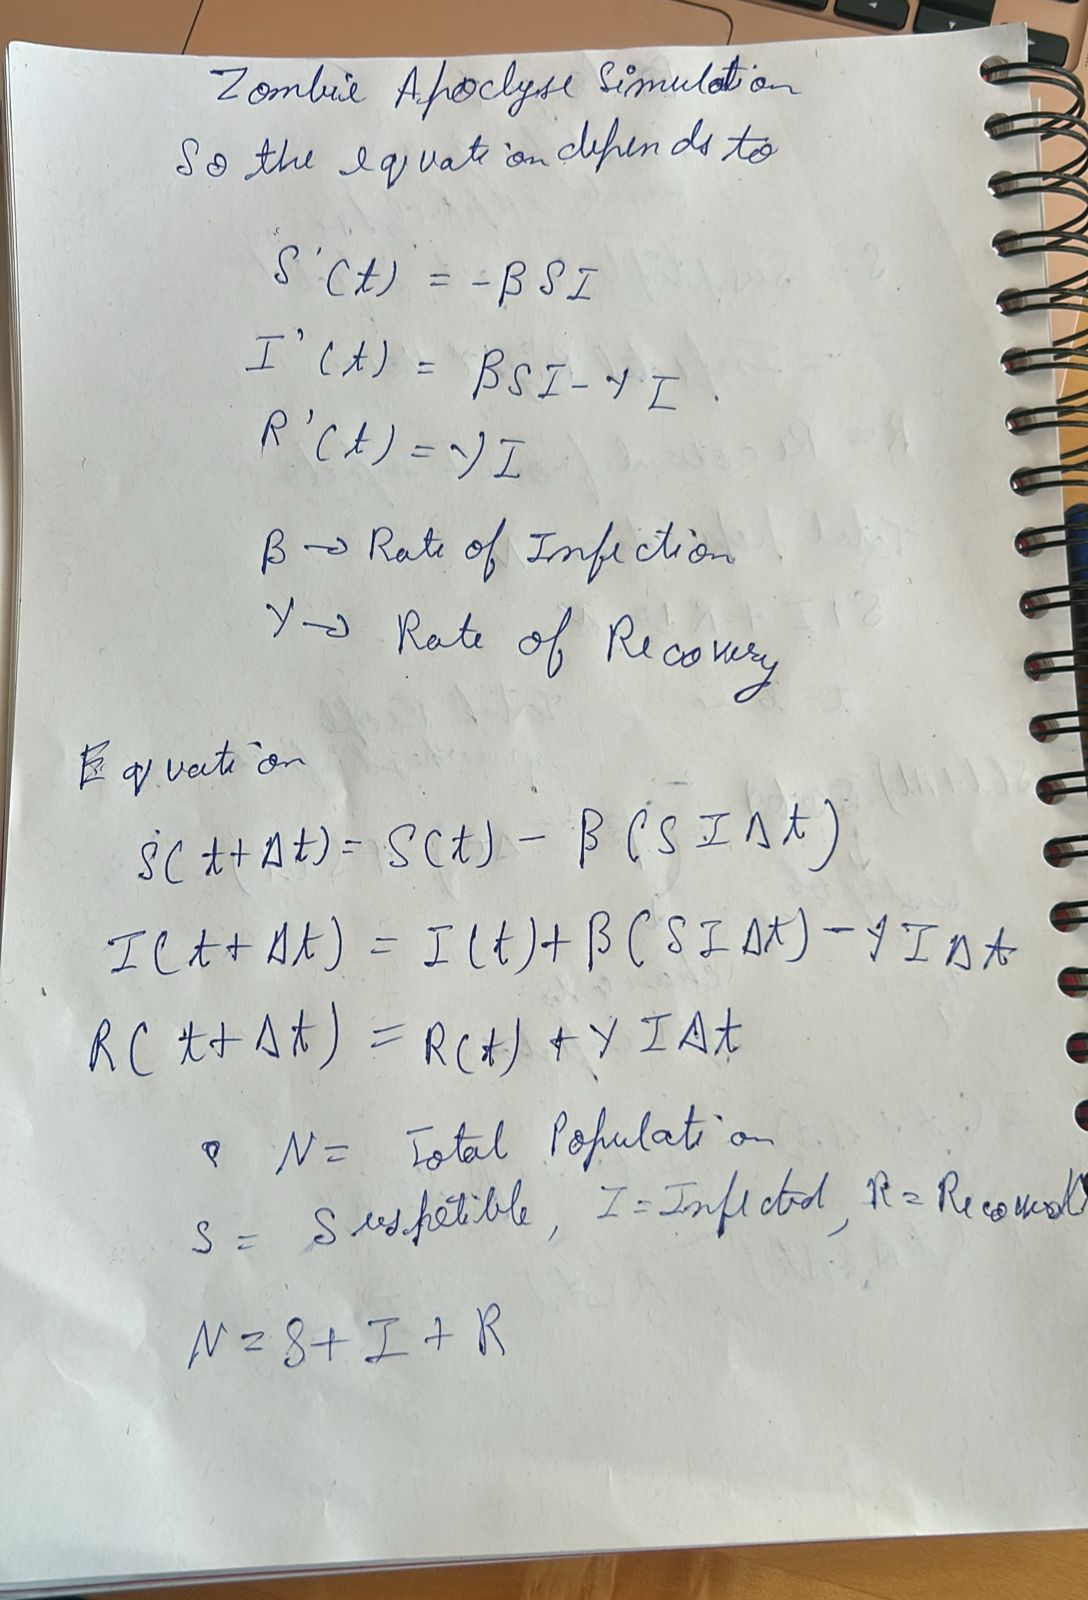 Zombie Apoclyse Simulation
So the equation depends to
S'(t) = -βSI
I'(t) = βSI - γI.
R'(t) = γI
β → Rate of Infection
γ → Rate of Recovery
Equation
S(t+Δt) = S(t) - β(SIΔt)
I(t+Δt) = I(t) + β(SIΔt) - γIΔt
R(t+Δt) = R(t) + γIΔt
• N = Total Population
S = Suspetible, I = Infected, R = Recovered
N = S + I + R